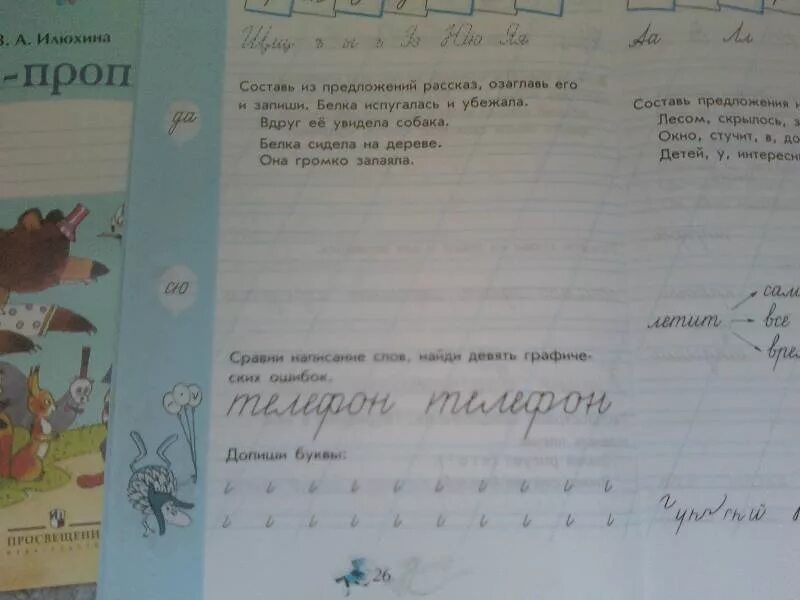 В. А. Илюхина
-проп
ПРОСВЕЩЕНИ
да
сю
ъ ы ь Зз Юю Яя
Составь из предложений рассказ, озаглавь его
и запиши. Белка испугалась и убежала.
Вдруг её увидела собака.
Белка сидела на дереве.
Она громко залаяла.
Сравни написание слов, найди девять графиче-
ских ошибок.
телефон телефон
Допиши буквы:
26
Аа Лл
Составь предложения и
Лесом, скрылось, з
Окно, стучит, в, до
Детей, у, интересн
летит
сам
все
врем